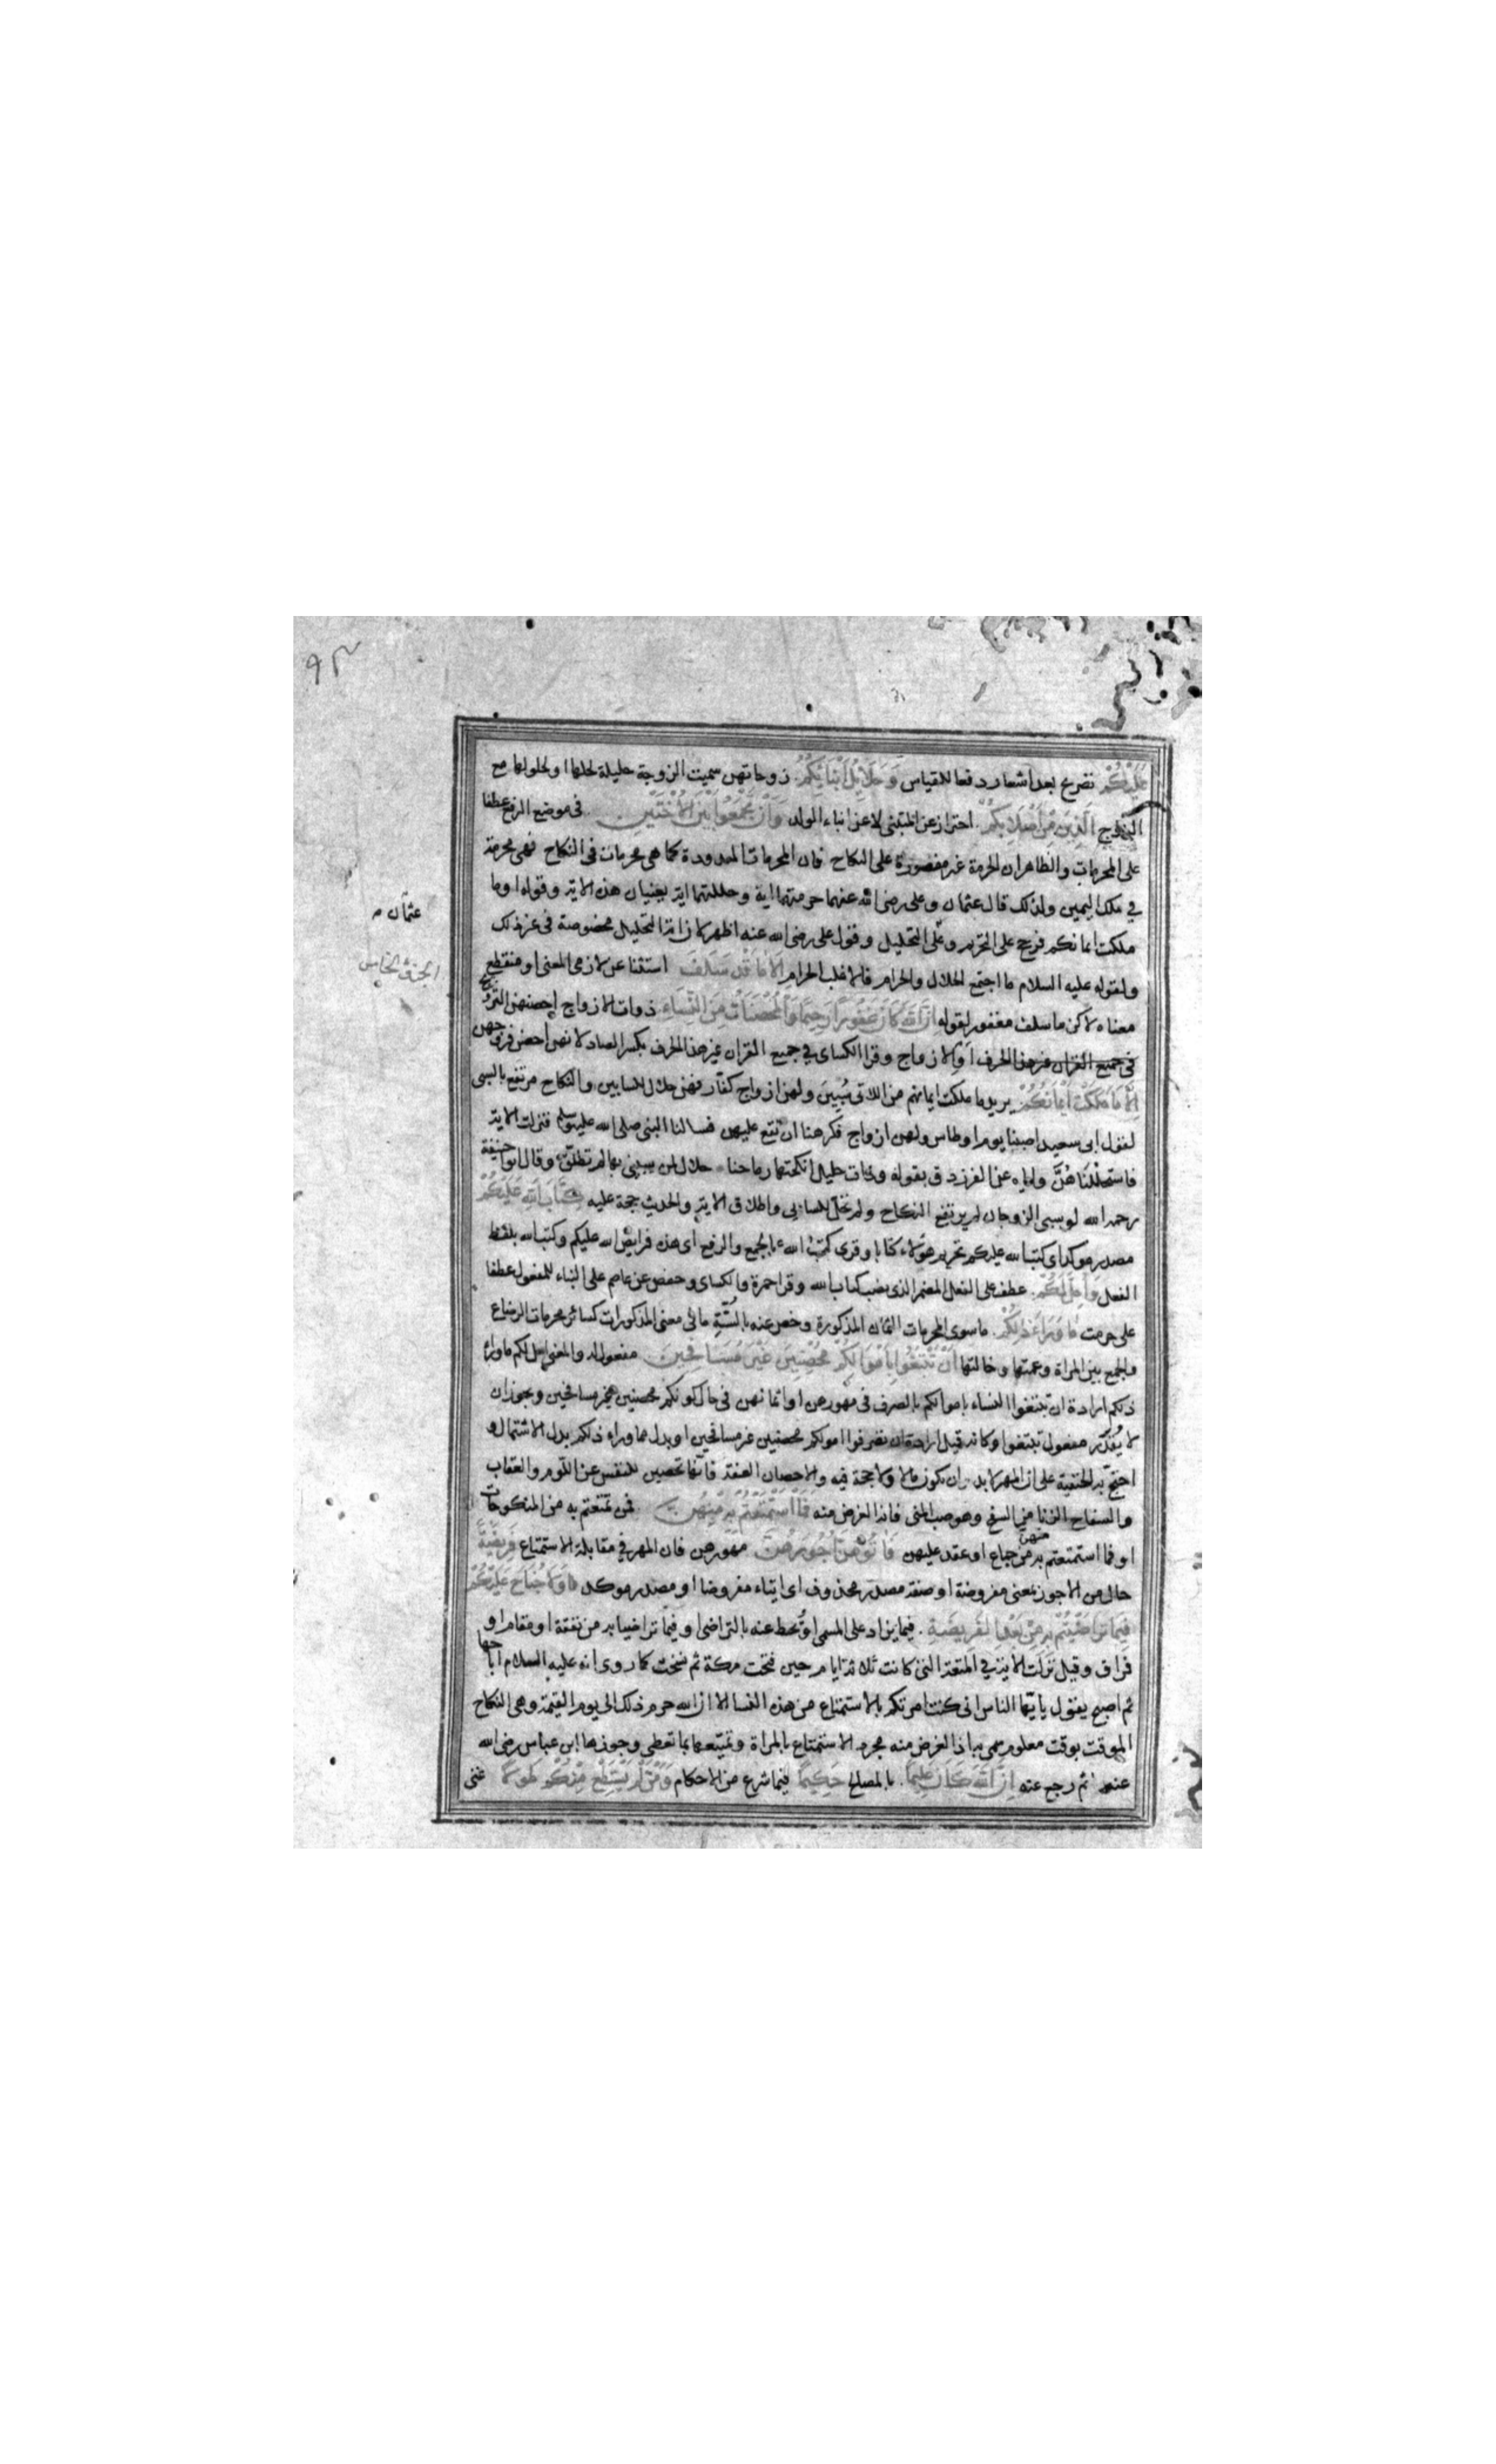 ٩٣
عَلَيْكُمْ تصريح بعد اشعار دفعا للقياس وَحَلَائِلُ أَبْنَائِكُمُ زوجاتهن سميت الزوجة حليلة لحلها او لحلولها مع
الزوج الَّذِينَ مِنْ أَصْلَابِكُمْ احتراز عن المتبنى لا عن ابناء الولد وَأَنْ تَجْمَعُوا بَيْنَ الْأُخْتَيْنِ في موضع الرفع عطفا
على المحرمات والظاهر ان الحرمة غير مقصورة على النكاح فان المحرمات المعدودة كما هي محرمات في النكاح فهي محرمة
في ملك اليمين ولذلك قال عثمان وعلى رضى الله عنهما حرمتهما اية وحللتهما اية يعنيان هذه الاية وقوله او ما
ملكت ايمانكم فرجح على التحريم و على التحليل وقول على رضى الله عنه اظهر لان اية التحليل مخصوصة في غير ذلك
عثمان
ولقوله عليه السلام ما اجتمع الحلال والحرام الا غلب الحرام إِلَّا مَا قَدْ سَلَفَ استثنا عن لازم المعنى او منقطع
الجزؤ الخامس
معناه لاكن ما سلف مغفور لقوله إِنَّ اللَّهَ كَانَ غَفُورًا رَحِيمًا وَالْمُحْصَنَاتُ مِنَ النِّسَاءِ ذوات الازواج احصنهن التزوج
في جميع القران غير هذا الحرف او الازواج وقرا الكسائى في جميع القران غير هذا الحرف بكسر الصاد لانهن احصن فروجهن
إِلَّا مَا مَلَكَتْ أَيْمَانُكُمْ يريد ما ملكت ايمانهم من اللاتى سُبِينَ ولهن ازواج كفّار فهن حلال للسابين والنكاح مرتفع بالسبى
لقول ابى سعيد اصبنا يوم اوطاس ولهن ازواج فكرهنا ان نقع عليهن فسالنا النبى صلى الله عليه وسلم فنزلت الاية
فاستحللناهُنَّ واياه عنا الفرزدق بقوله وذات حليل انكحتها رماحنا حلال لمن يبنى بها لم تطلّق وقال ابو حنيفة
رحمه الله لو سبى الزوجان لم يرتفع النكاح ولم تحلّ للسابى واطلاق الاية والحديث حجة عليه كِتَابَ اللَّهِ عَلَيْكُمْ
مصدر موكد اى كتب الله عليكم تحريم هؤلاء كتابا وقرى كتب الله بالجمع والرفع اى هذه فرايض الله عليكم وكتب الله بلفظ
الفعل وَأُحِلَّ لَكُمْ عطف على الفعل المضمر الذى نصب كتاب الله وقرا حمزة والكسائى وحفص عن عاصم على البناء للمفعول عطفا
على حرمت مَا وَرَاءَ ذَلِكُمْ ما سوى المحرمات الثمان المذكورة وخص عنه بالسُّنَّةِ ما في معنى المذكورات كسائر محرمات الرضاع
والجمع بين المراة وعمتها وخالتها أَنْ تَبْتَغُوا بِأَمْوَالِكُمْ مُحْصِنِينَ غَيْرَ مُسَافِحِينَ مفعول له والمعنى احل لكم ما وراء
ذلكم ارادة ان تبتغوا النساء باموالكم بالصرف في مهورهن او اثمانهن في حال كونكم محصنين غير مسافحين ويجوز ان
لا يُقَدَّر مفعول تبتغوا وكانه قيل ارادة ان تصرفوا اموالكم محصنين غير مسافحين او بدل مما وراء ذلكم بدل الاشتمال و
احتجّ به الحنفية على ان المهر لابد وان يكون مالا ولا حجة فيه والاحصان العفة فانّها تحصين للنفس عن اللوم والعقاب
والسفاح الزنا من السفح وهو صب المنى فانه الغرض منه فَمَا اسْتَمْتَعْتُمْ بِهِ مِنْهُنَّ فمن تمتعتم به من المنكوحات
او فما استمتعتم به منهن من جماع او عقد عليهن فَآتُوهُنَّ أُجُورَهُنَّ مهورهن فان المهر في مقابلة الاستمتاع فَرِيضَةً
حال من الاجور بمعنى مفروضة او صفة مصدر محذوف اى ايتاء مفروضا او مصدر موكد وَلَا جُنَاحَ عَلَيْكُمْ
فِيمَا تَرَاضَيْتُمْ بِهِ مِنْ بَعْدِ الْفَرِيضَةِ فيما يزاد على المسمى او يُحط عنه بالتراضى او فيما تراضيا به من نفقة او مقام او
فراق وقيل نزلت الاية في المتعة التى كانت ثلاثة ايام حين فتحت مكة ثم نسخت كما روى انه عليه السلام اباحها
ثم اصبح يقول يا ايّها الناس انى كنت امرتكم بالاستمتاع من هذه النسا الا ان الله حرم ذلك الى يوم القيمة وهى النكاح
الموقت بوقت معلوم سمى بها اذ الغرض منه مجرد الاستمتاع بالمراة وتمتيعها بما تعطى وجوزها ابن عباس رضى الله
عنهما ثم رجع عنه إِنَّ اللَّهَ كَانَ عَلِيمًا بالمصالح حَكِيمًا فيما شرع من الاحكام وَمَنْ لَمْ يَسْتَطِعْ مِنْكُمْ طَوْلًا غنى